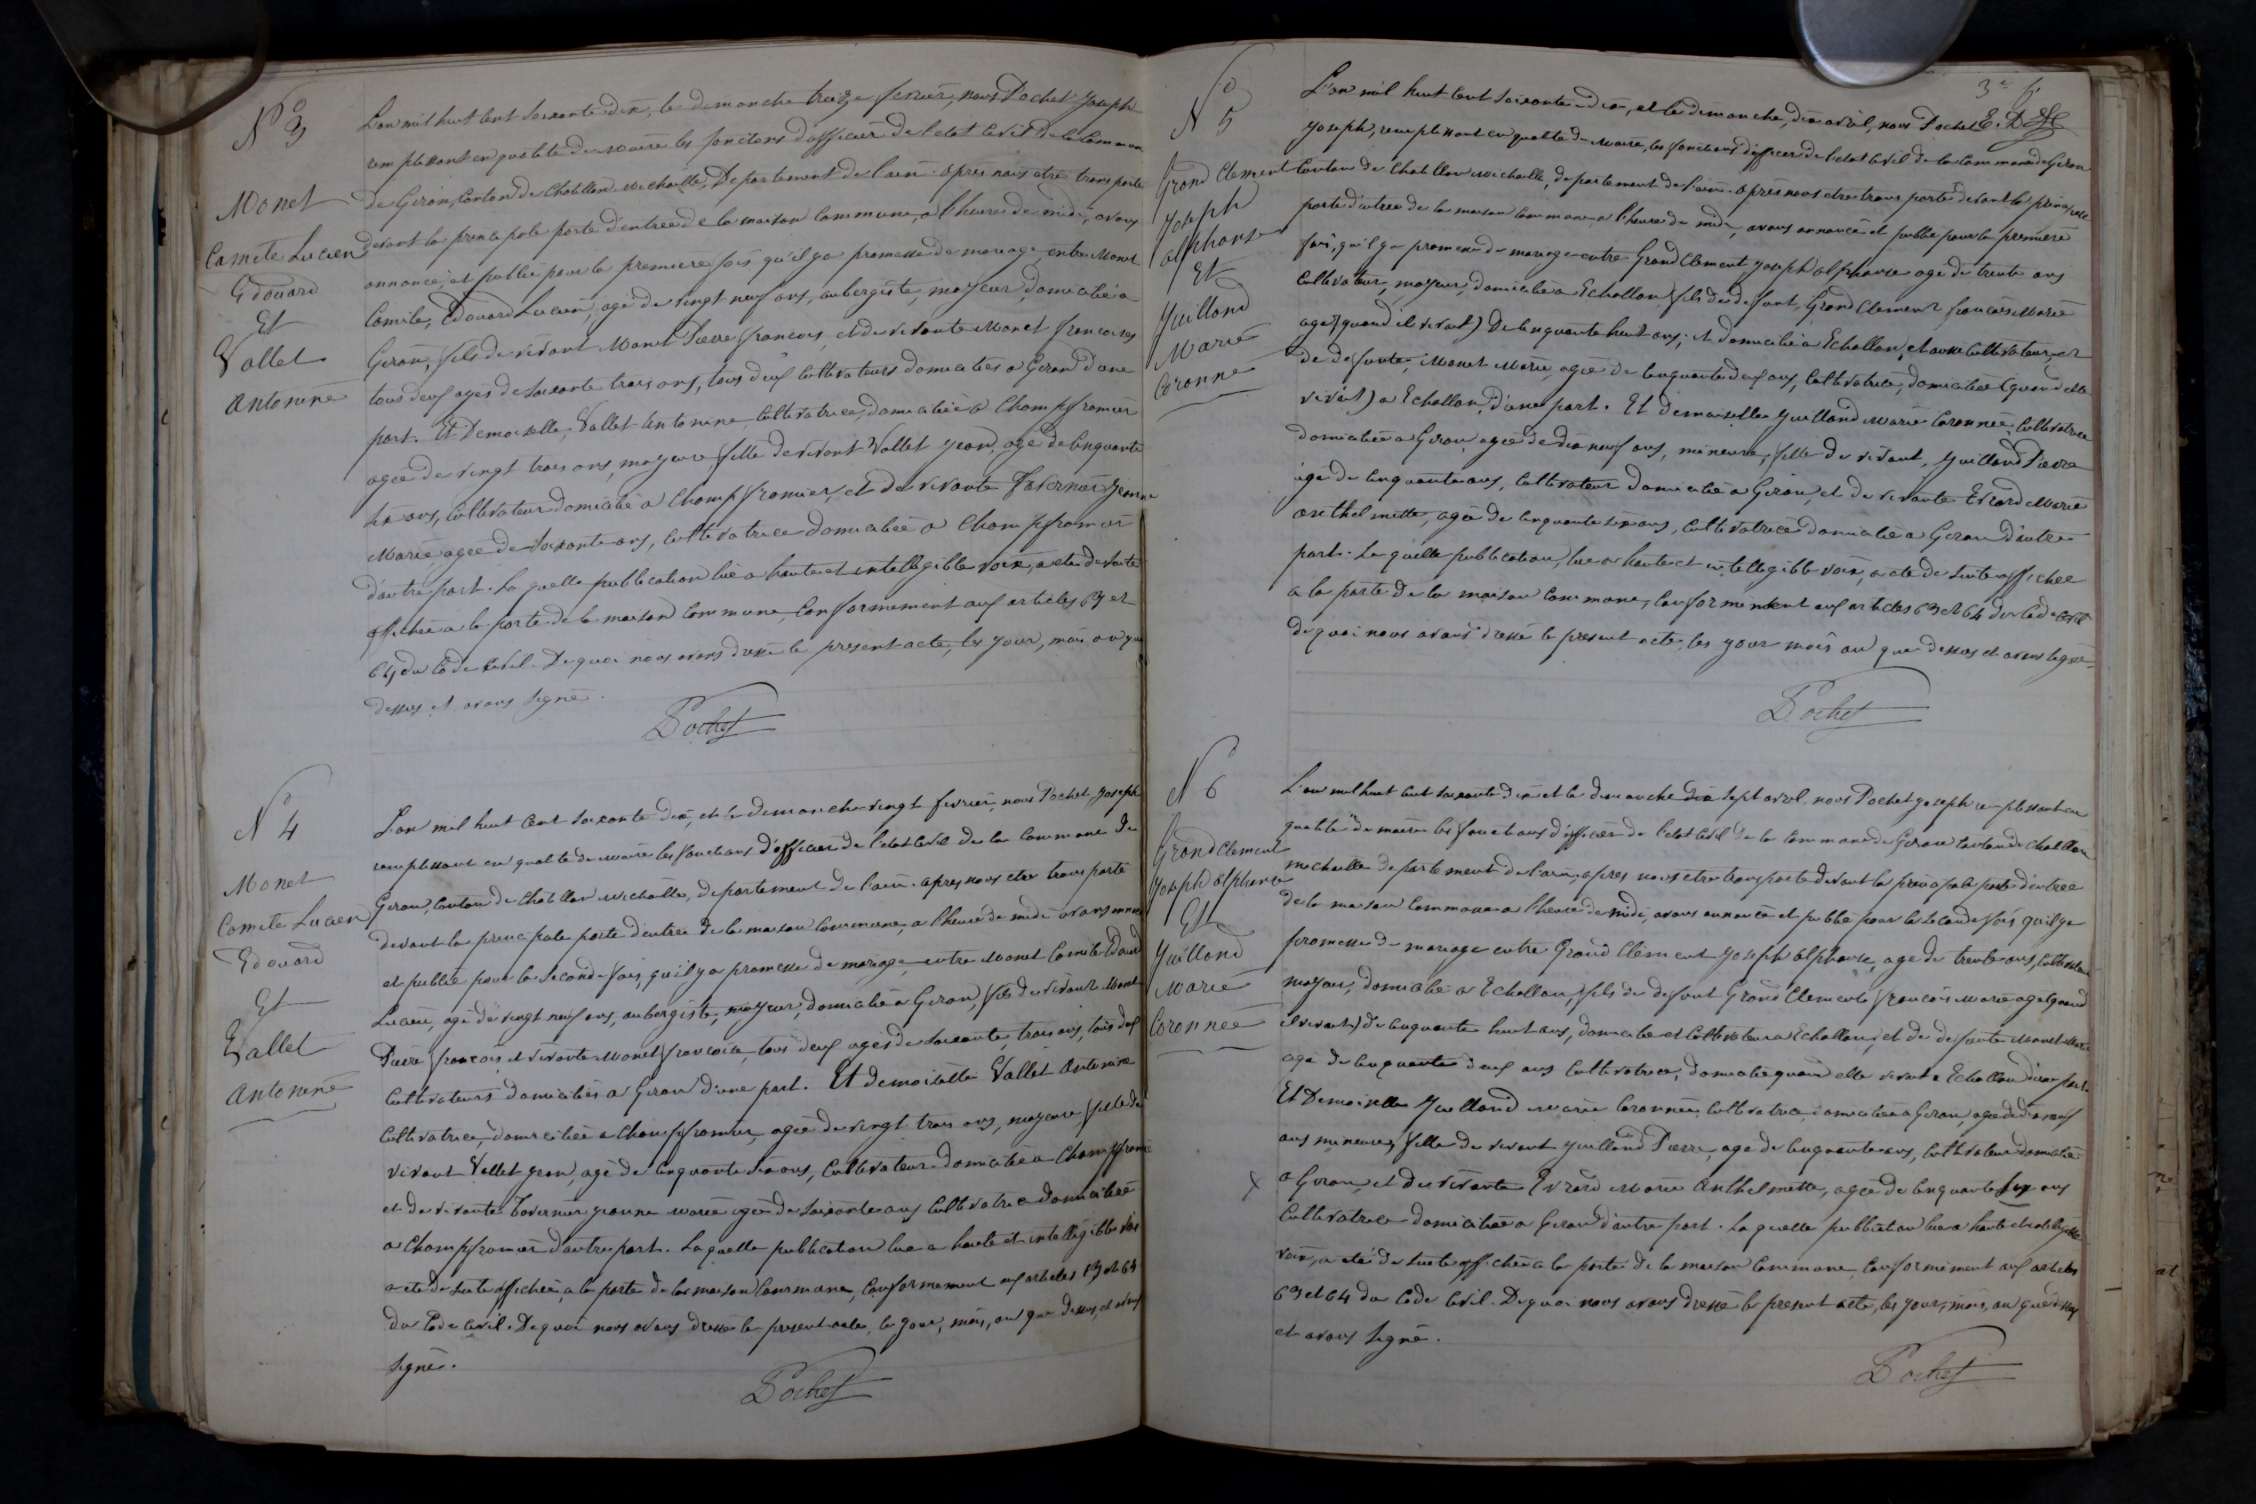 N° 3
Monet
Camile Lucien
Edouard
Et
Vallet
Antonine
L'an mil huit cent soixante dix, le demanche treize fevrier, nous Pochet Joseph
remplissant en qualité de maire les fonctions d'officier de l'etat civil de la commune
de Giron, Canton de Chatillon michaille, Departement de l'ain. apres nous etre transporte
devant la principale porte d'entrée de la maison Commune, a l'heure de midi, avons
annonce, et publié pour la premiere fois qu'il y a promesse de mariage, entre Monet
Camile, Edouard Lucien, agé de vingt neuf ans, aubergiste, mayeur, domicilié a
Giron, fils de vivant Monet Pierre françois, et de vivante Monet françoise
tous deux agés de soixante trois ans, tous deux Cultivateurs domiciliés a Giron d'une
part. Et Demoiselle, Vallet Antonine, Cultivatrice, domiciliée a Champfromier
agée de vingt trois ans, mayeure, fille de vivant Vallet jean, agé de cinquante
six ans, Cultivateur domicilié a Champfromier, et de vivante Tavernier jeanne
Marie, agée de soixante ans, Cultivatrice domiciliée a Champfromier
d'autre part. La quelle publication lue a haute et intelligible voix, a eté de suite
affichée a la porte de la maison commune, Conformement aux articles 63 et
64, du Code civil. De quoi nous avons dressé le present acte, les jour, mois an que
dessus et avons signé.
Pochet
N° 4
Monet
Camile Lucien
Edouard
Et
Vallet
Antonine
L'an mil huit Cent soixante dix, et le demanche vingt fevrier, nous Pochet Joseph
remplissant en qualité de maire les fonctions d'officier de l'etat civil de la Commune de
Giron, Canton de Chatillon michaille, departement de l'ain. apres nous etre transporté
devant la principale porte d'entrée de la maison Commune, a l'heure de midi avons annoncé
et publié pour la seconde fois, qu'il y a promesse de mariage, entre Monet Camile Edouard
Lucien, agé de vingt neuf ans, aubergiste, mayeur, domicilié a Giron, fils de vivant Monet
Pierre françois et vivante Monet françoise, tous deux agés de soixante trois ans, tous deux
Cultivateurs domiciliés a Giron d'une part. Et demoiselle Vallet Antonine
Cultivatrice, domiciliée a Champfromier, agée de vingt trois ans, mayeure, fille de
vivant Vallet jean, agé de cinquante six ans, Cultivateur domicilié a Champfromier
et de vivante Tavernier jeanne marie agée de soixante ans Cultivatrice domiciliée
a Champfromier d'autre part. Laquelle publication lue a haute et intelligible voix
a eté de suite affichée, a la porte de la maison Commune, Conformement aux articles 63 et 64
du Code civil. De quoi nous avons dressé le present acte, les jour, mois, an que dessus, et avons
signé.
Pochet
3e f.
N° 5
Grand Clement
Joseph
alphonse
Et
Juilland
Marie
Coronne
L'an mil huit cent soixante dix, et le demanche, dix avril, nous Pochet
Joseph, remplissant en qualité de Maire, les fonctions d'officier de l'etat civil de la Commune de Giron
Canton de Chatillon michaille, departement de l'ain. apres nous etre transporté devant la principale
porte d'entree de la maison Commune a l'heure de midi, avons annoncé et publié pour la premiere
fois, qu'il y a promesse de mariage entre Grand Clement Joseph alphonse agé de trente ans
Cultivateur, mayeur, domicilié a Echallon, fils de defunt, Grand Clement françois Marie
agé (quand il vivait) De cinquante huit ans, et domicilié a Echallon, et aussi Cultivateur, et
de defunte, Monet Marie, agée de cinquante deux ans, Cultivatrice, domiciliée (quand elle
vivait) a Echallon, d'une part. Et demoiselle Juilland Marie Coronnée, Cultivatrice
domiciliée a Giron, agée de dix neuf ans, mineure, fille de vivant, Juilland Pierre
agé de cinquante ans, Cultivateur domicilié a Giron, et de vivante Evrard Marie
anthelmette, agée de cinquante six ans, Cultivatrice domiciliée a Giron D'autre
part. La quelle publication, lue a haute et intelligible voix, a eté de suite affichée
a la porte de la maison Commune, Conformement aux articles 63 et 64 du Code civil
de quoi nous avons dressé le present acte, les jour mois an que dessus et avons signé.
Pochet
N° 6
Grand Clement
Joseph alphonse
Et
Juilland
Marie
Coronnée
L'an mil huit cent soixante dix et le demanche dix sept avril nous Pochet Joseph remplissant en
qualité de maire les fonctions d'officier de l'etat civil de la Commune de Giron Canton de Chatillon
michaille departement de l'ain, apres nous etre transporté devant la principale porte d'entree
de la maison Commune a l'heure de midi, avons annoncé et publié pour la seconde fois qu'il y a
promesse de mariage entre Grand Clement Joseph alphonse, agé de trente ans, Cultivateur
mayeur, domicilié a Echallon, fils de defunt Grand Clement françois Marie agé (quand
il vivait) de cinquante huit ans, domicilié et Cultivateur a Echallon, et de defunte Monet Marie
agé de cinquante deux ans Cultivatrice, domiciliée quand elle vivait a Echallon d'une part.
Et Demoiselle Juilland Marie Coronnée Cultivatrice domiciliée a Giron, agée de dix neuf
ans mineure, fille de vivant Juilland Pierre, agé de cinquante ans, Cultivateur domicilié
x a Giron, et de vivante Evrard Marie Anthelmette, agée de cinquante six ans
Cultivatrice domiciliée a Giron d'autre part. La quelle publication lue a haute et intelligible
voix, a eté de suite affichée a la porte de la maison Commune, Conformement aux articles
63 et 64 du Code Civil. De quoi nous avons dressé le present acte, les jour, mois, an que dessus
et avons signé.
Pochet